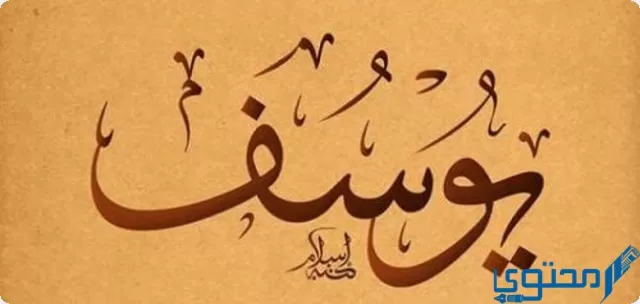 يُوسُف
كتبه إسلام
محتوى